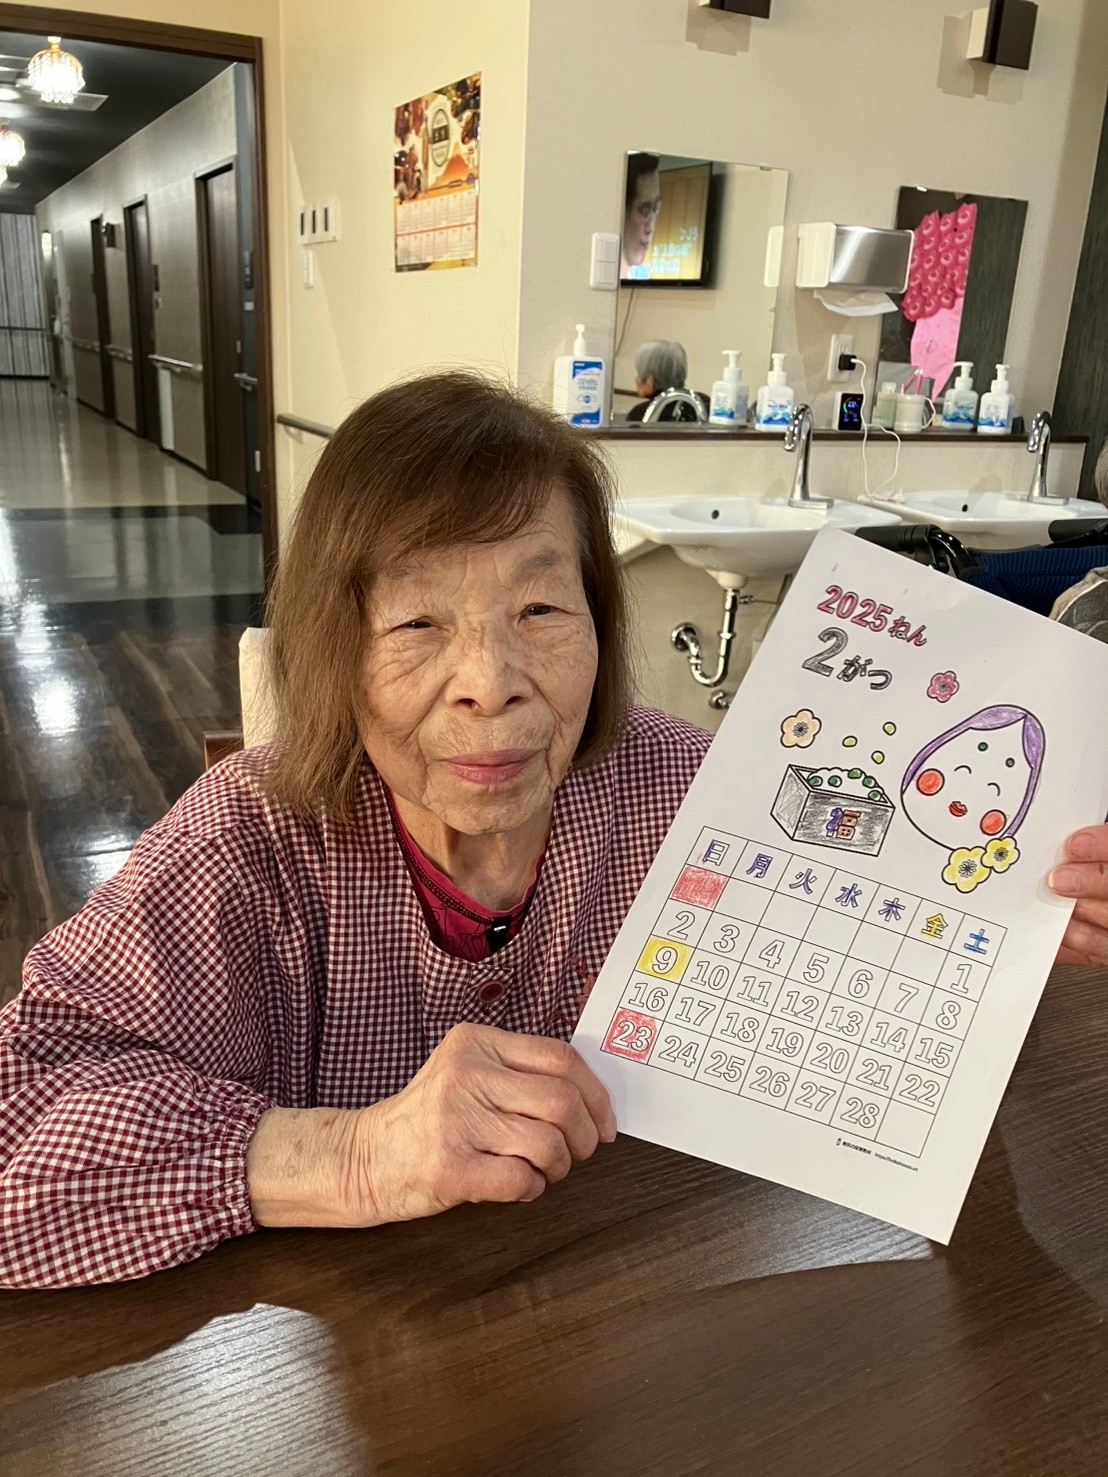 2025ねん
2がつ
福
日 月 火 水 木 金 土
1
2 3 4 5 6 7 8
9 10 11 12 13 14 15
16 17 18 19 20 21 22
23 24 25 26 27 28